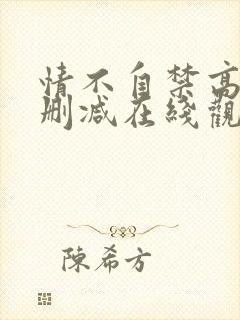 情不自禁高
删减在綫觀
陳希方